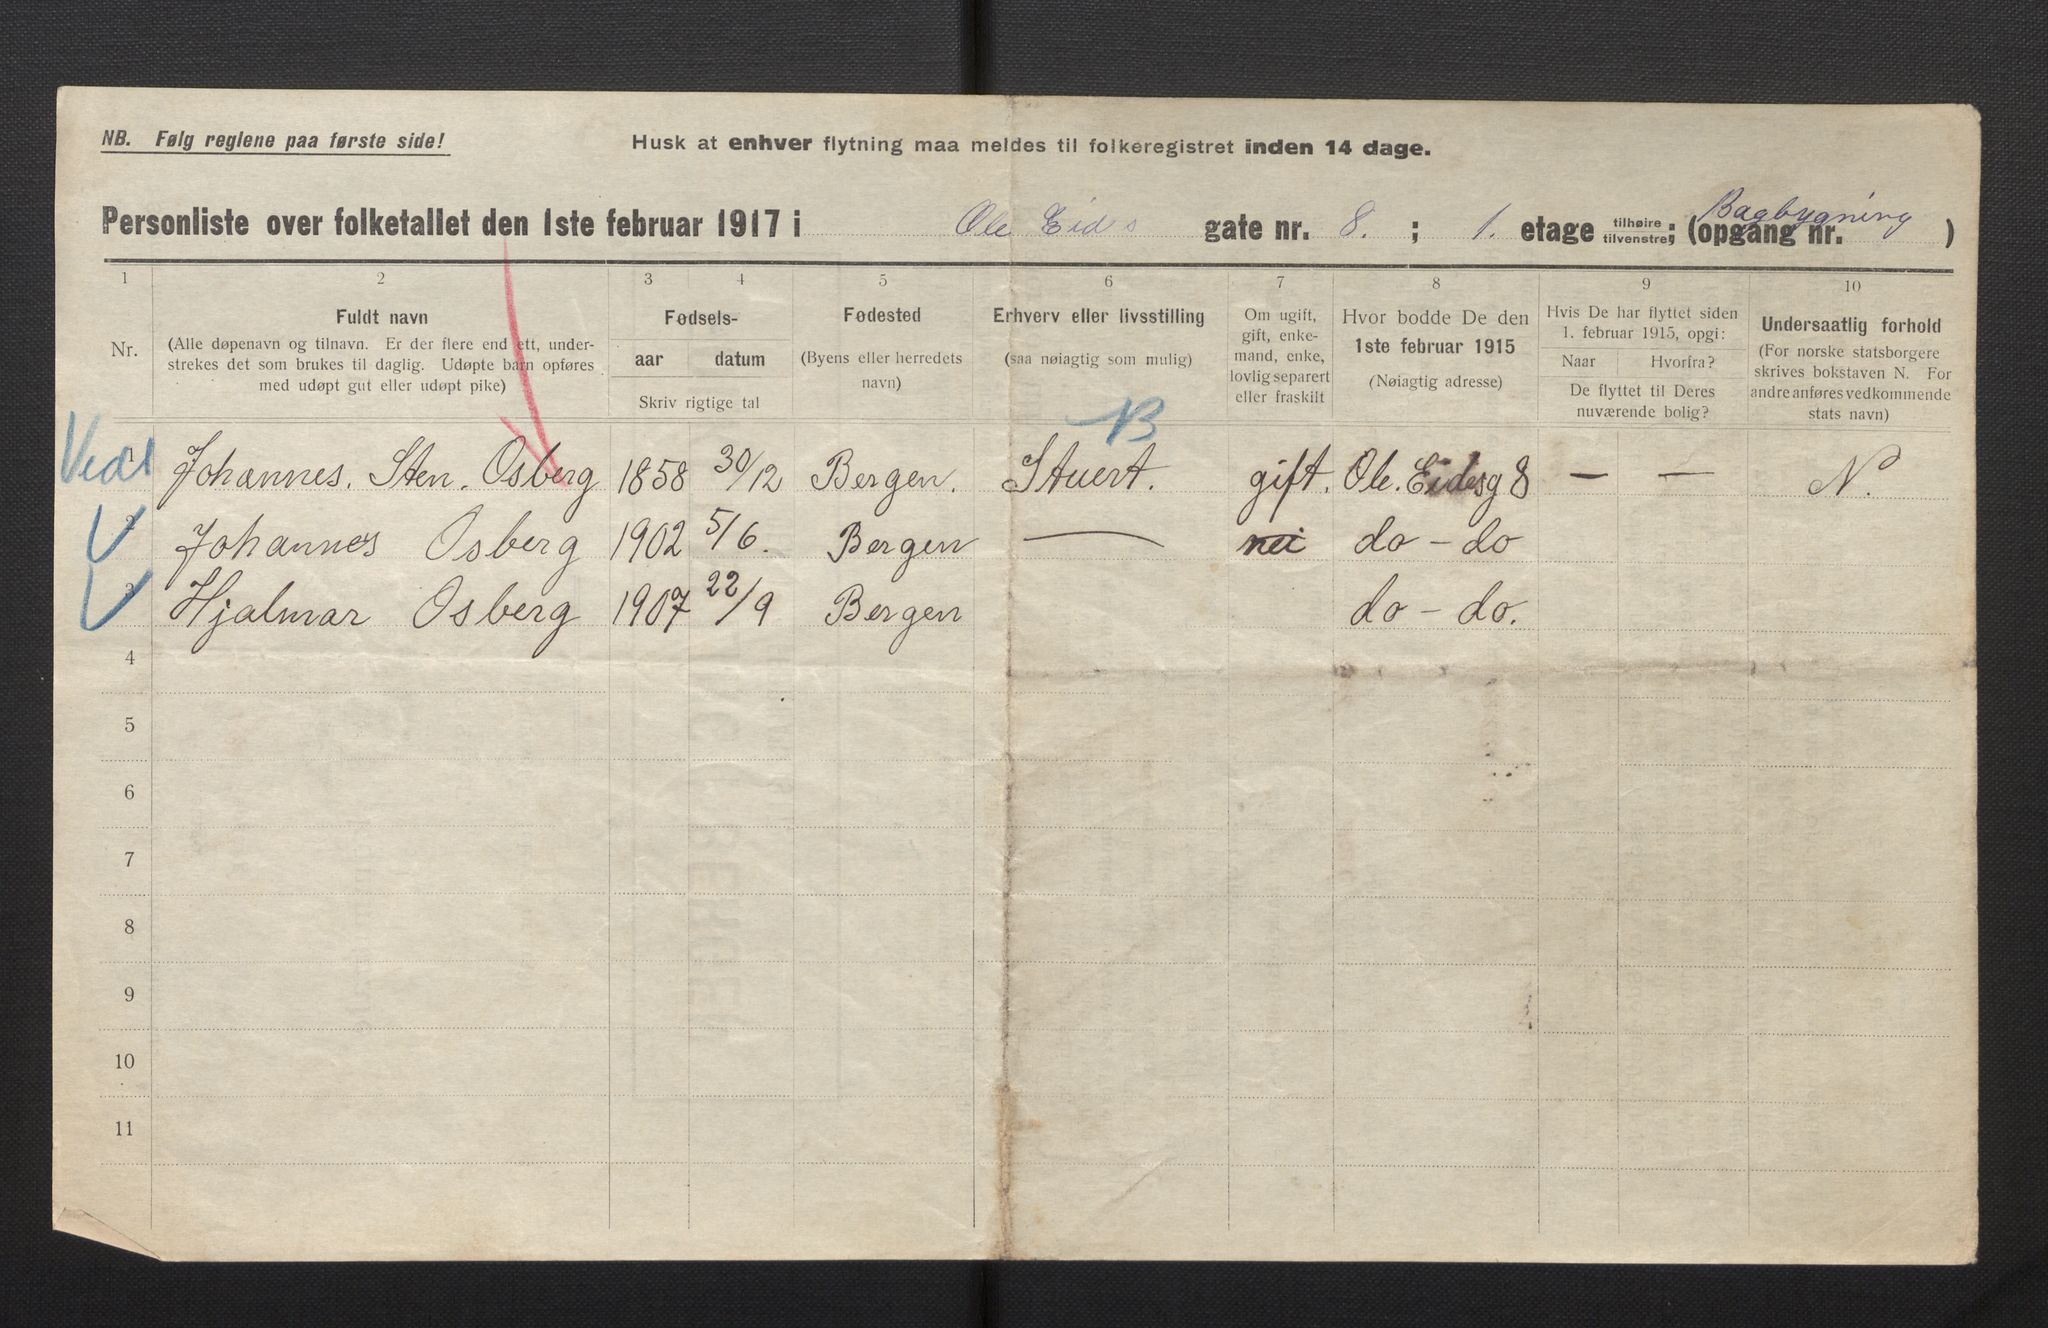 NB. Følg reglene paa første side!
Husk at enhver flytning maa meldes til folkeregistret inden 14 dage.
Personliste over folketallet den 1ste februar 1917 i Ole Eids gate nr. 8. ; 1. etage tilhøire tilvenstre; (opgang nr. Bagbygning )
1 2 3 4 5 6 7 8 9 10
Nr.
Fuldt navn
(Alle døpenavn og tilnavn. Er der flere end ett, under-
strekes det som brukes til daglig. Udøpte barn opføres
med udøpt gut eller udøpt pike)
Fødsels-
aar datum
Skriv rigtige tal
Fødested
(Byens eller herredets
navn)
Erhverv eller livsstilling
(saa nøiagtig som mulig)
Om ugift,
gift, enke-
mand, enke,
lovlig separert
eller fraskilt
Hvor bodde De den
1ste februar 1915
(Nøiagtig adresse)
Hvis De har flyttet siden
1. februar 1915, opgi:
Naar Hvorfra?
De flyttet til Deres
nuværende bolig?
Undersaatlig forhold
(For norske statsborgere
skrives bokstaven N. For
andre anføres vedkommende
stats navn)
1 Johannes. Sten. Osberg 1858 30/12 Bergen. Stuert. gift. Ole. Eidesg 8 — — N.
2 Johannes Osberg 1902 5/6. Bergen — nei do - do
3 Hjalmar Osberg 1907 22/9 Bergen do - do.
4
5
6
7
8
9
10
11